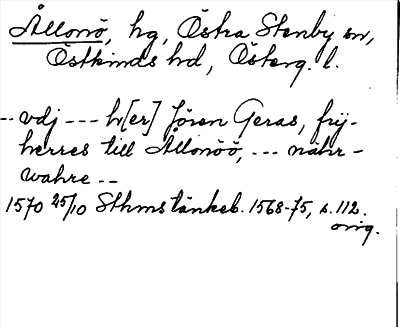 Ållonö, hg, Östra Stenby sn,
Östkinds hd, Österg. l.
-- vdj --- h[er] Jören Geras, frÿ-
herres till Ållonöö, --- nähr-
wahre --
1570 25/10 Sthms tänkeb. 1568-75, s. 112.
orig.